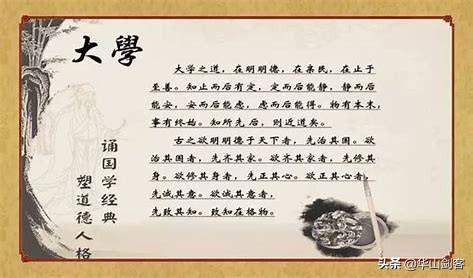 大學
大学之道，在明明德，在亲民，在止于
至善。知止而后有定，定而后能静，静而后
能安，安而后能虑，虑而后能得。物有本末，
事有终始。知所先后，则近道矣。
古之欲明明德于天下者，先治其国。欲
治其国者，先齐其家。欲齐其家者，先修其
身。欲修其身者，先正其心。欲正其心者，
先诚其意。欲诚其意者，
先致其知。致知在格物。
诵国学经典
塑道德人格
头条@华山剑客